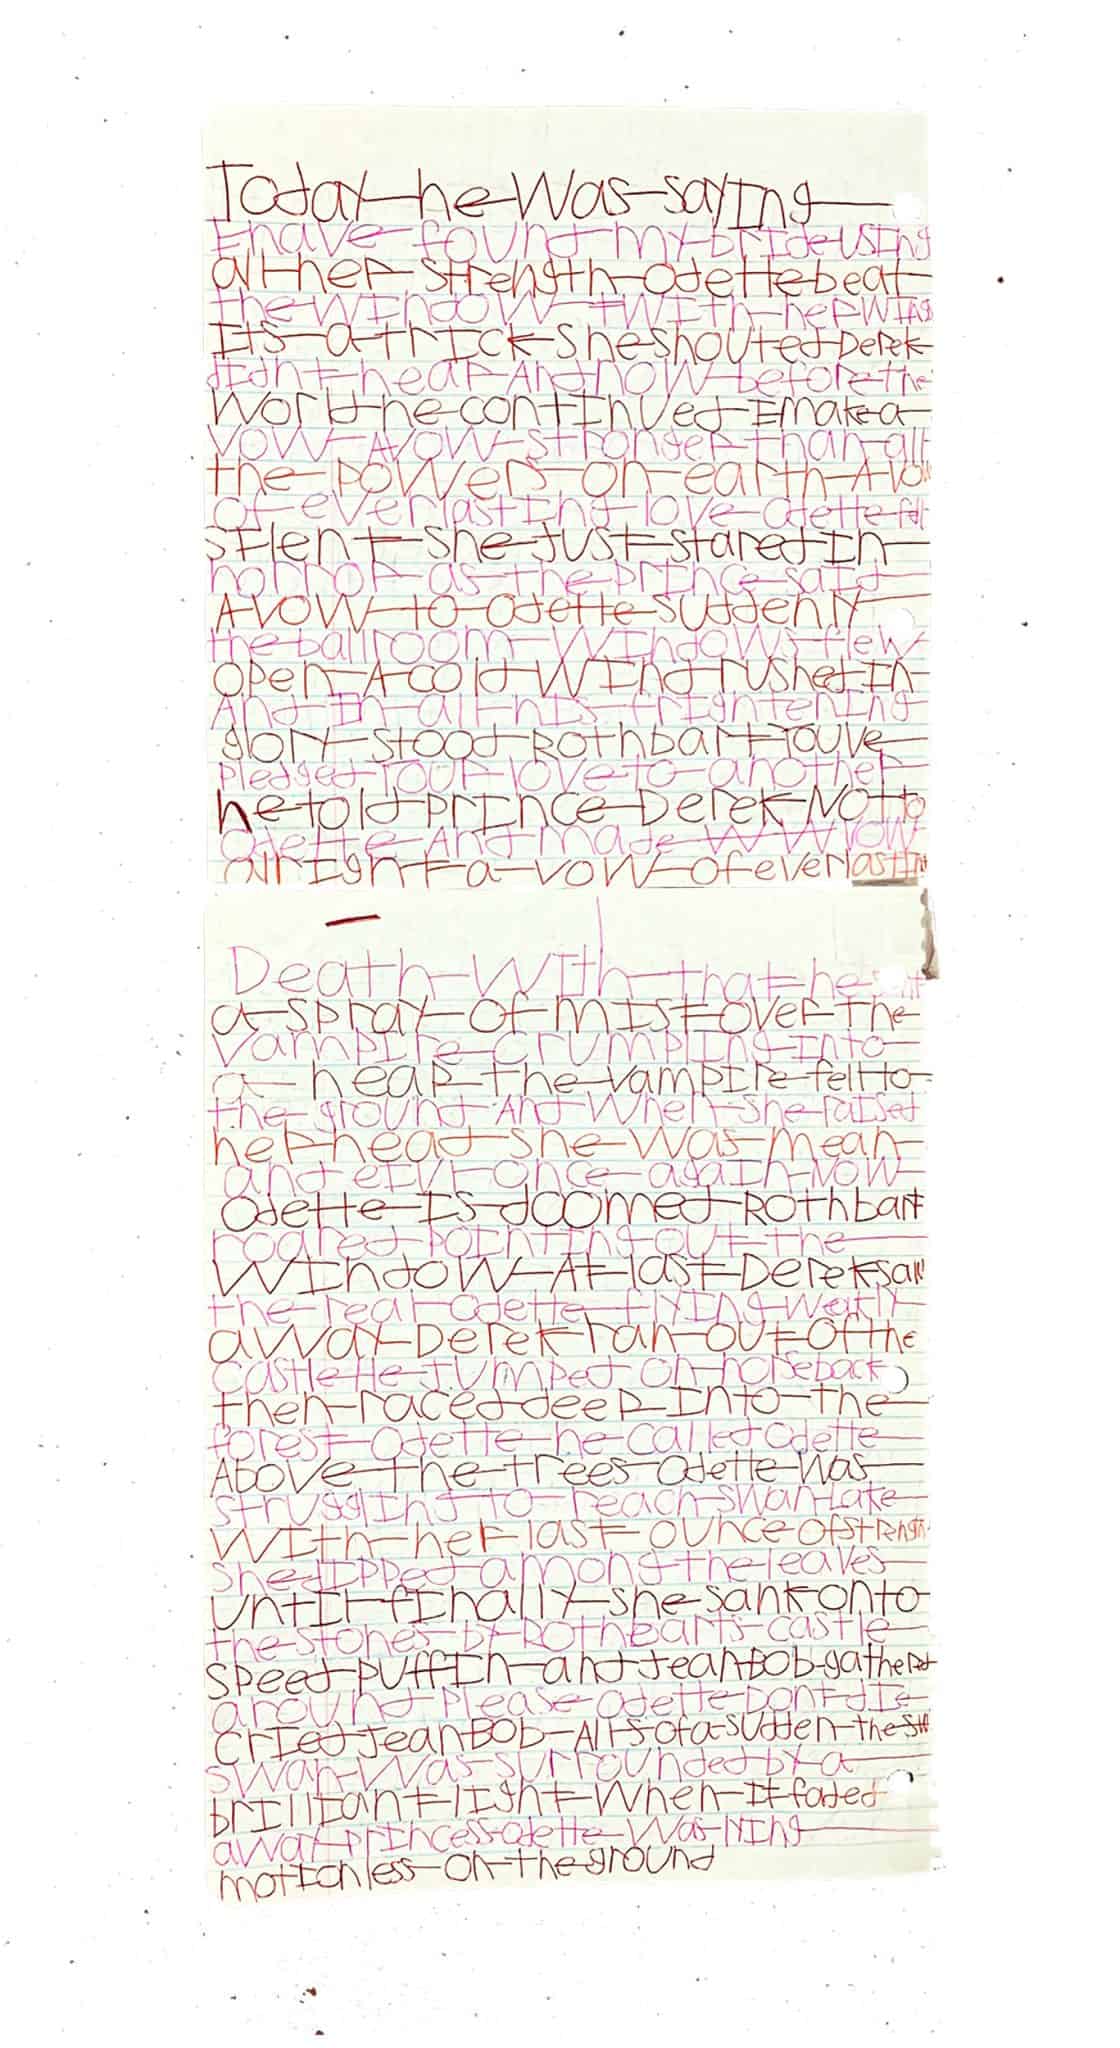 Today he Was sayIng
I have found my brIde USIng
all her strength Odette beat
the WIndow WIth her WIng
Its a trIck she shouted Derek
dIdnt hear And noW before the
World he contInued I make a
VOW A VOW stronger than all
the powers on earth A VOW
Of everlastIng love Odette fell
sIlent She just stared In
horror as the prInce saId
A VOW to Odette Suddenly
the ballroom WIndoWs flew
open A cold WInd rushed In
And In all hIs frIghtenIng
glory stood Rothbart Youve
pledged Your love to another
he told prInce Derek Not to
Odette And made VOW
alrIght a vow of everlastIng
Death WIth that he sent
a spray Of mIst over The
VampIre crumplIng Into
a heap the VampIre fell to
the ground And When she raIsed
her head she Was mean
and eIvl once agaIn NOW
Odette Is doomed Rothbart
roared poIntIng out the
WIndoW At last Derek saW
the real Odette flyIng Weakly
aWay Derek ran out Of the
castle He jUmped On horseback
then raced deep Into the
forest Odette he called Odette
Above the trees Odette Was
strugglIng to reach Swan Lake
WIth her last ounce of strength
She dIpped among the leaves
UntIl fInally she sank onto
the stones by Rothbarts castle
Speed PuffIn and Jean Bob gathered
around Please Odette Dont dIe
crIed Jean Bob All sofa sudden the
swan Was sUrrounded by a
brIllIant lIght When It faded
aWay prIncess Odette Was lyIng
motIonless On the ground